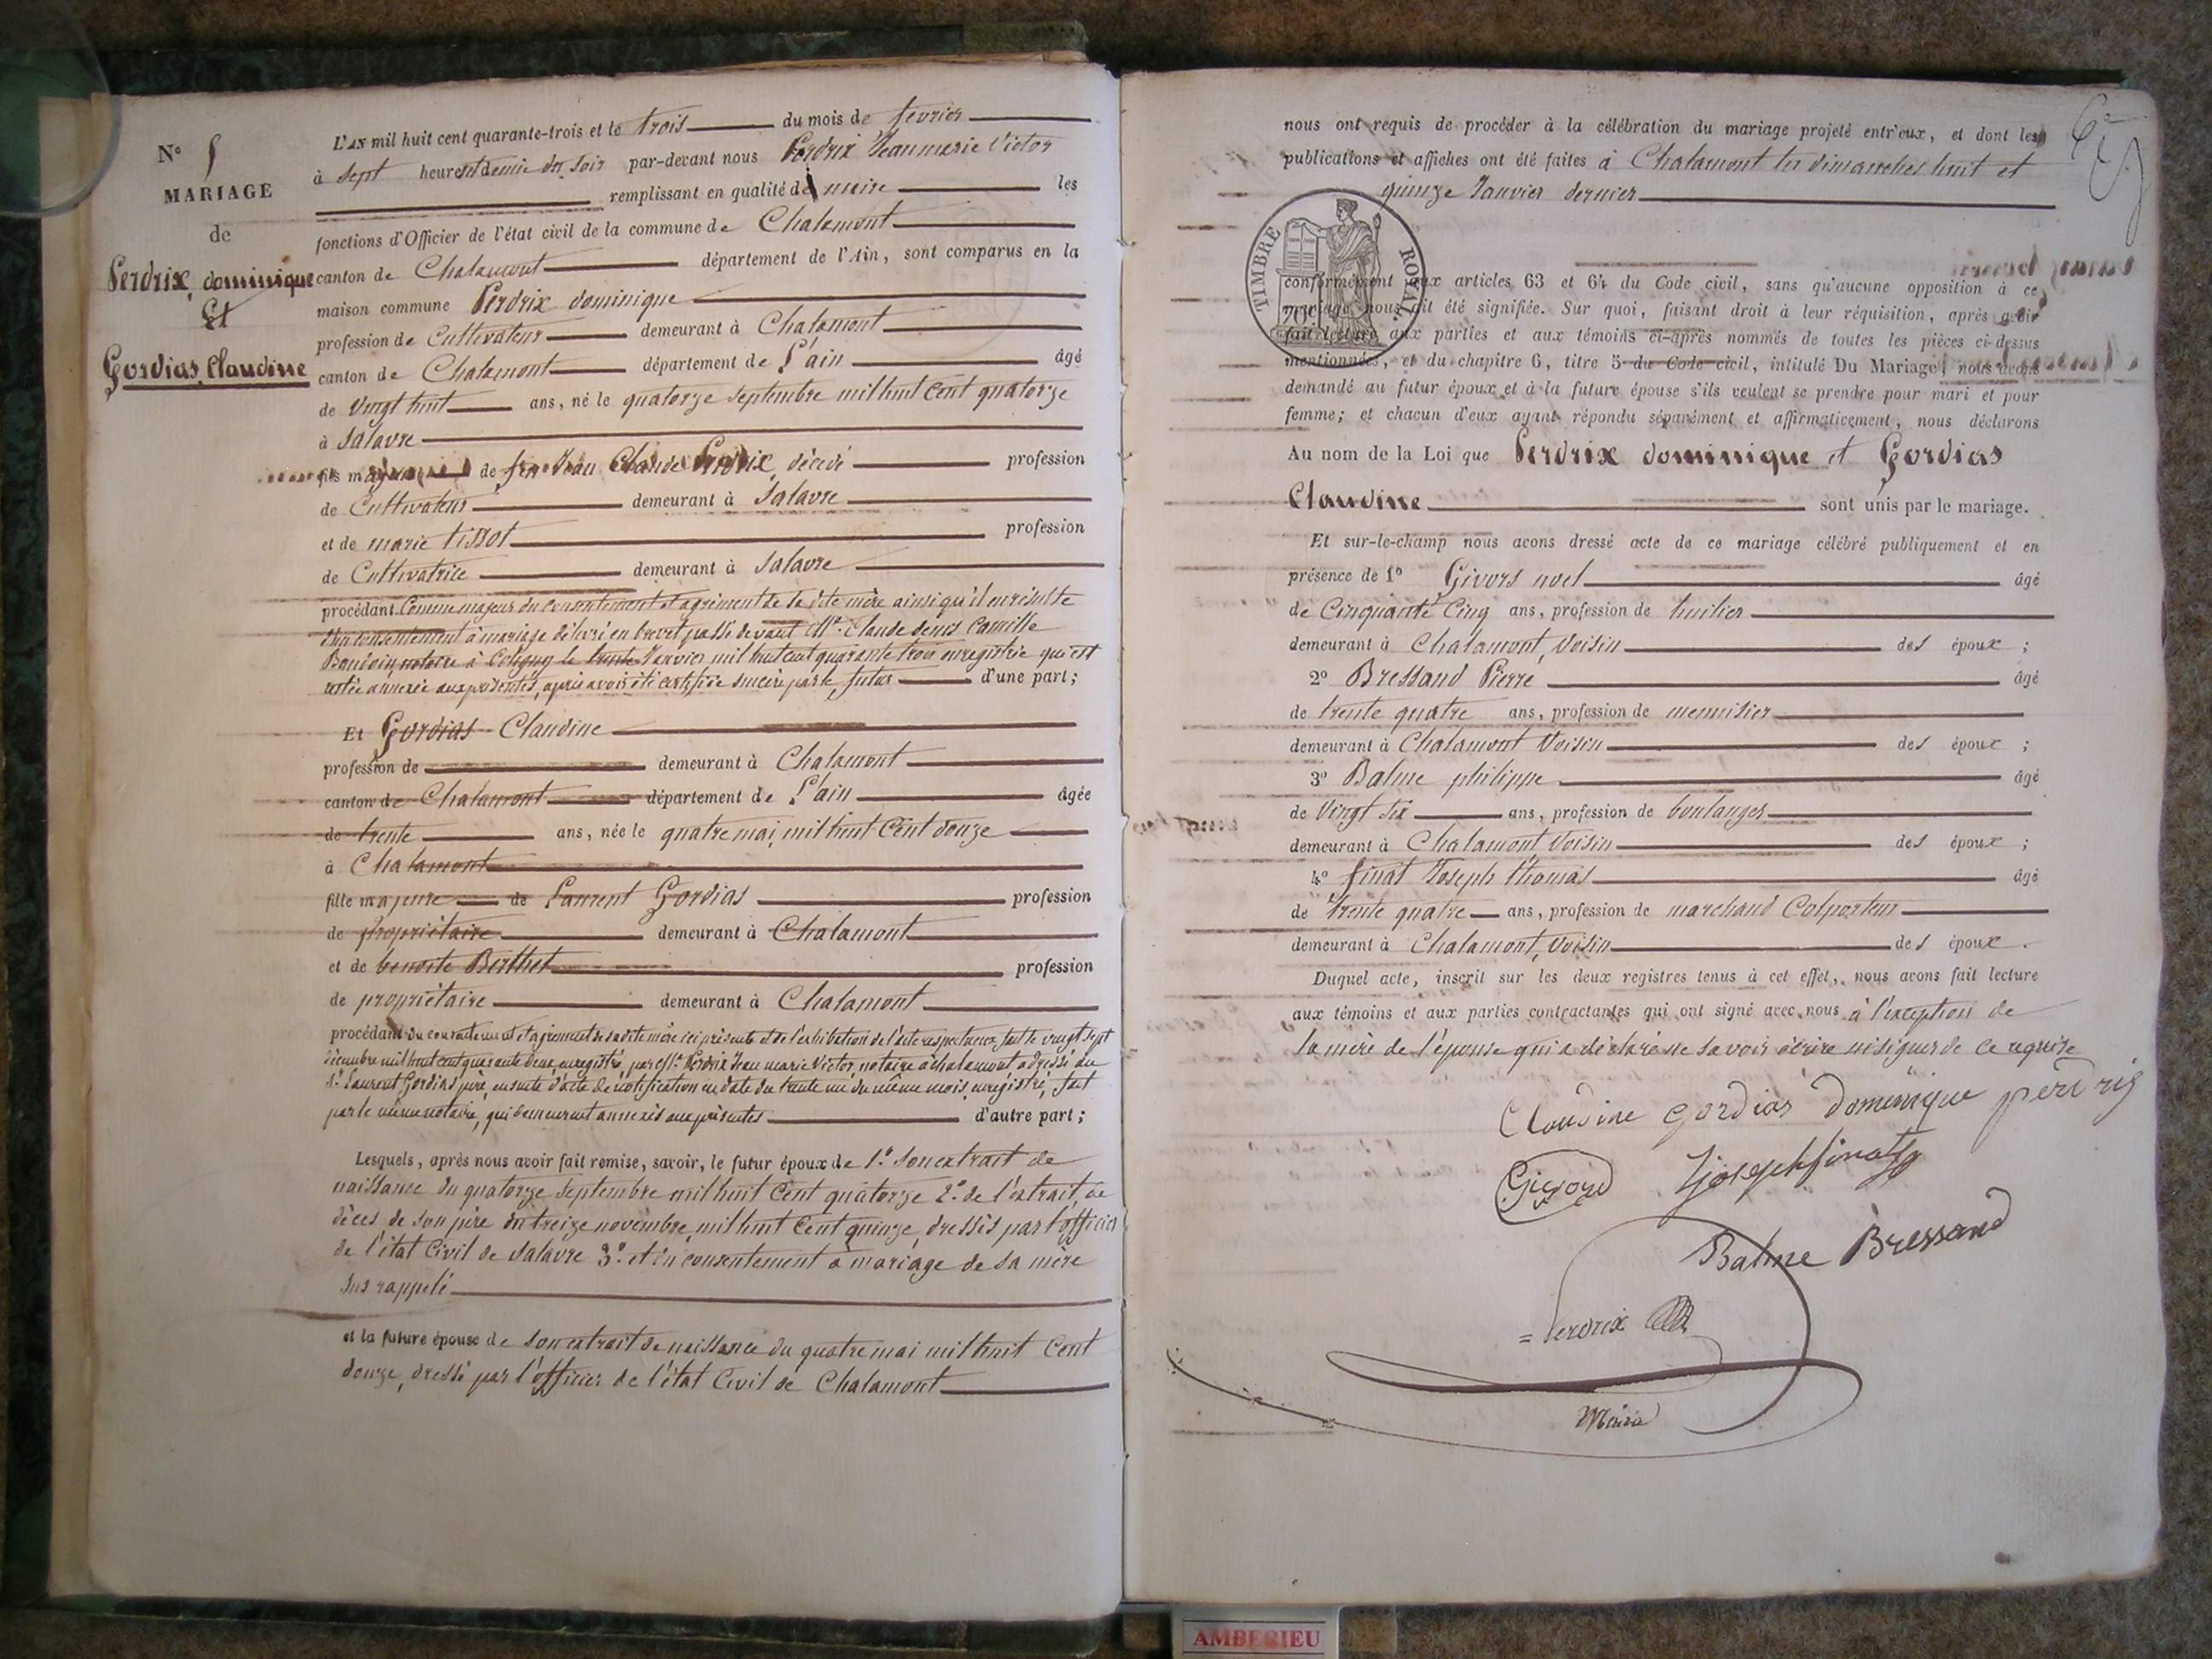 N° 5
MARIAGE
de
Perdrix dominique
Et
Gordias Claudine
L'AN mil huit cent quarante-trois et le trois du mois de fevrier
à sept heures et demie du soir par-devant nous Perdrix Jean marie Victor
remplissant en qualité de maire les
fonctions d'Officier de l'état civil de la commune de Chalamont
canton de Chalamont département de l'Ain, sont comparus en la
maison commune Perdrix dominique
profession de Cultivateur demeurant à Chalamont
canton de Chalamont département de L'ain âgé
de vingt huit ans, né le quatorze septembre mil huit Cent quatorze
à Salavre
fils majeur de feu Jean Claude Perdrix, décédé profession
de Cultivateur demeurant à Salavre
et de marie tissot profession
de Cultivatrice demeurant à Salavre
procédant Comme majeur du consentement et agrément de la dite mère ainsi qu'il en résulte
d'un consentement à mariage délivré en brevet passé devant Me. Claude denis Camille
Bondoin, notaire à Coligny le trente Janvier mil huit cent quarante trois enregistrée qui est
restée annexée aux présentes, après avoir été certifiée sincère par le futur d'une part;
Et Gordias Claudine
profession de demeurant à Chalamont
canton de Chalamont département de L'ain âgée
de trente ans, née le quatre mai, mil huit Cent douze
à Chalamont
fille majeure de Laurent Gordias profession
de propriétaire demeurant à Chalamont
et de benoite Berthet profession
de propriétaire demeurant à Chalamont
procédant du consentement et agrément de sa dite mère ici présente et de l'exhibition de l'acte respectueux, fait le vingt sept
décembre mil huit cent quarante deux, enregistré, par Me. Perdrix Jean marie Victor, notaire à chalamont adressé au
Sr. Laurent Gordias père, ensuite d'acte de notification en date du trente un du même mois, enregistré, fait
par le même notaire, qui demeurent annexés aux présentes d'autre part;
Lesquels, après nous avoir fait remise, savoir, le futur époux de 1° son extrait de
naissance du quatorze septembre mil huit Cent quatorze 2° de l'extrait de
décès de son père du treize novembre, mil huit Cent quinze, dressés par l'officier
de l'état Civil de Salavre 3° et du consentement à mariage de sa mère
sus rappelé
et la future épouse de son extrait de naissance du quatre mai mil huit Cent
douze, dressé par l'officier de l'état Civil de Chalamont
nous ont requis de procéder à la célébration du mariage projeté entr'eux, et dont les
publications et affiches ont été faites à Chalamont les dimanches huit et
quinze Janvier dernier
TIMBRE ROYAL
conformément aux articles 63 et 64 du Code civil, sans qu'aucune opposition à ce
mariage nous ait été signifiée. Sur quoi, faisant droit à leur réquisition, après avoir
fait lecture aux parties et aux témoins ci-après nommés de toutes les pièces ci-dessus
mentionnées, et du chapitre 6, titre 5 du Code civil, intitulé Du Mariage, nous avons
demandé au futur époux et à la future épouse s'ils veulent se prendre pour mari et pour
femme; et chacun d'eux ayant répondu séparément et affirmativement, nous déclarons
Au nom de la Loi que Perdrix dominique et Gordias
Claudine sont unis par le mariage.
Et sur-le-champ nous avons dressé acte de ce mariage célébré publiquement et en
présence de 1° Givors noel âgé
de Cinquante Cinq ans, profession de huilier
demeurant à Chalamont, Voisin des époux;
2° Bressand Pierre âgé
de trente quatre ans, profession de menuisier
demeurant à Chalamont Voisin des époux;
3° Balme philippe âgé
de Vingt six ans, profession de boulanger
demeurant à Chalamont Voisin des époux;
4° finat Joseph thomas âgé
de trente quatre ans, profession de marchand Colporteur
demeurant à Chalamont, Voisin des époux.
Duquel acte, inscrit sur les deux registres tenus à cet effet, nous avons fait lecture
aux témoins et aux parties contractantes qui ont signé avec nous à l'exception de
la mère de l'épouse qui a déclaré ne savoir écrire ni signer de ce requise
Claudine gordias dominique perdrix
Josephfinat
Balme Bressand
Perdrix
Maire
AMBERIEU